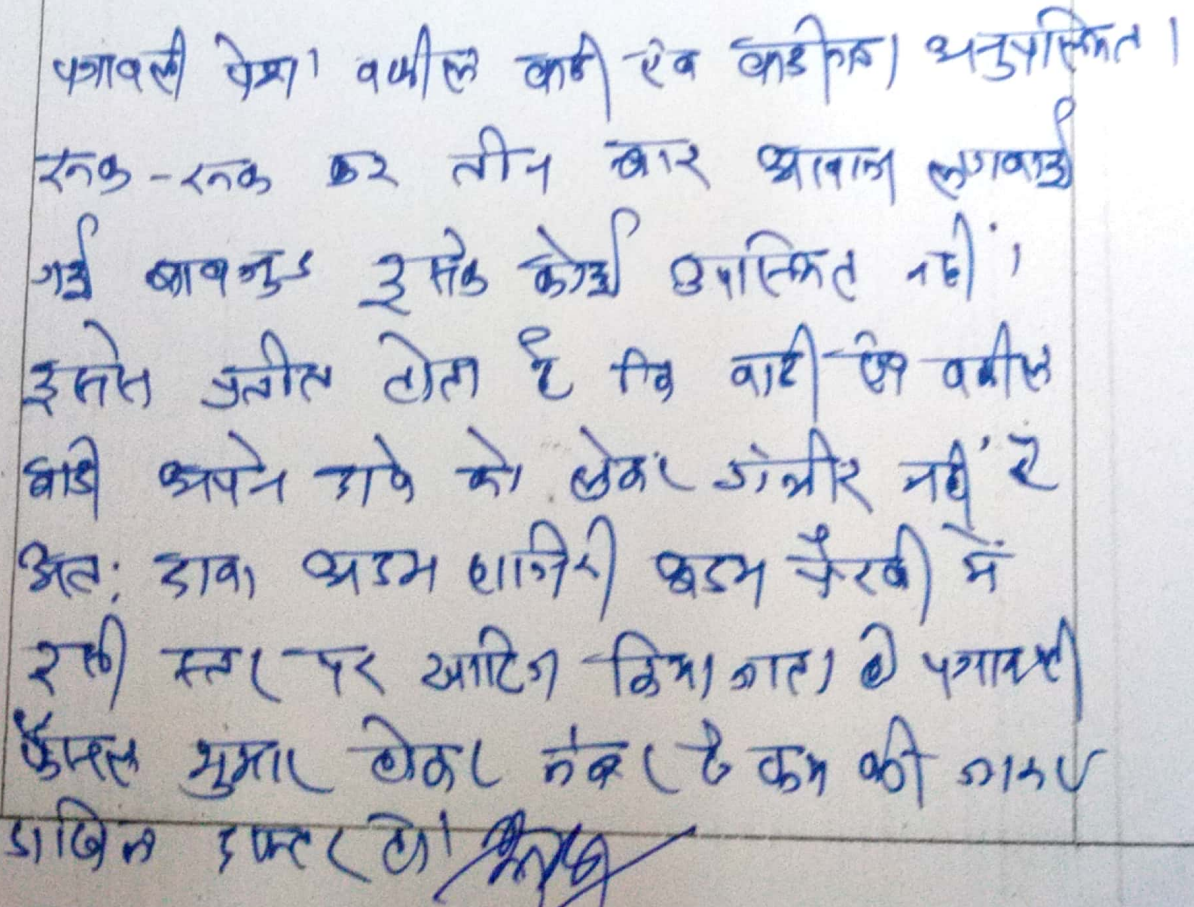 पत्रावली पेश। वकील वादी एंव वादीगण अनुपस्थित।
रूक-रूक कर तीन बार आवाज लगवाई
गई बावजुद इसके कोई उपस्थित नहीं।
इससे प्रतीत होता है कि वादी एंव वकील
वादी अपने दावे को लेकर गंभीर नहीं है
अत: दावा अदम हाजिरी अदम पैरवी में
इसी स्तर पर खारिज किया जाता है पत्रावली
फैसल शुमार होकर नंबर से कम की जाकर
दाखिल दफ्तर हो।